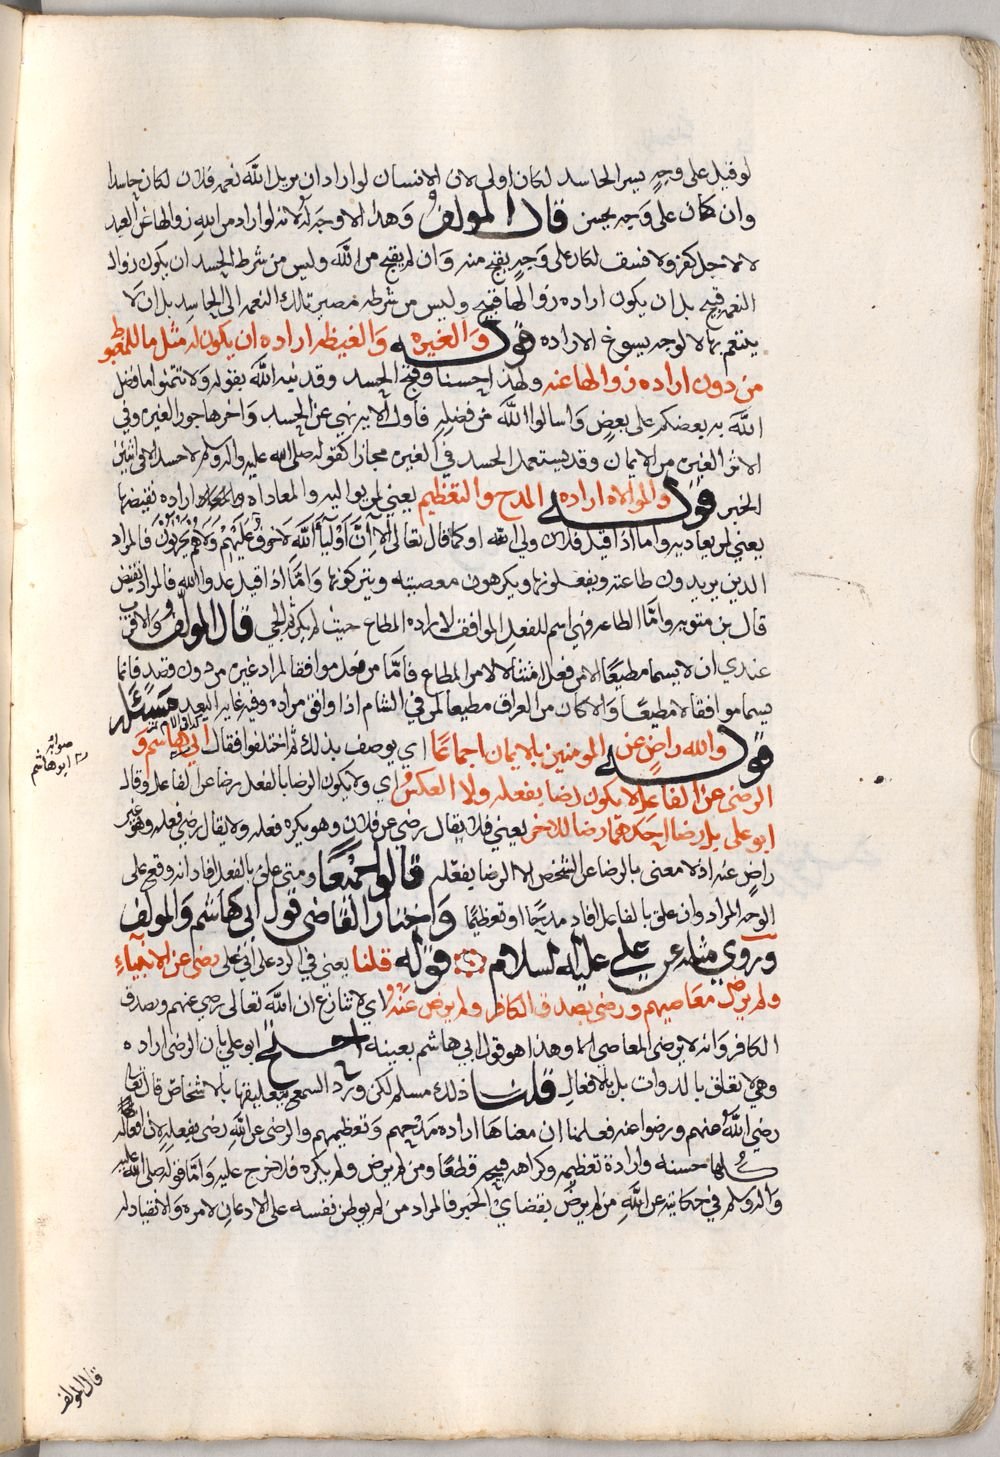 لو قيل على وجهٍ يسر الحاسد لكان اولى لان الانسان لو اراد ان يزيل الله نعمه فلان لكان حاسدا
وان كان على وجه يحسن قال المولف وهذا لا وجه له لانه لو اراد من الله زوالها عن العبد
لا لاجل كفر ولا فسق لكان على وجهٍ يقبح منه وان لم يقبح من الله وليس من شرط الحسد ان يكون زوال
النعمه قبيح بل ان يكون اراده زوالها قبيح وليس من شرطه مصير تلك النعمه الى الحاسد بل ان لا
يتنعم بها لا لوجه يسوغ الاراده قوله والغيره والغيطه اراده ان يكون له مثل ما للمغبوط
من دون اراده زوالها عنه ولهذا حسنا وقبح الحسد وقد نبه الله بقوله ولا تتمنوا ما فضل
الله به بعضكم على بعضٍ واسالوا الله من فضله فاول الايه نهي عن الحسد واخرها جواز الغيره وفي
الاثر الغيره من الايمان وقد يستعمل الحسد في الغيره مجازا كقوله صلى الله عليه واله وسلم لا حسد الا في اثنين
الخبر قوله والموالاه اراده المدح والتعظيم يعني لمن يواليه والمعاداه اراده نقيضها
يعني لمن يعاديه واما اذا قيل فلان ولي الله او كما قال تعالى الا ان اولياء الله لا خوف عليهم ولا هم يحزنون فالمراد
الذين يريدون طاعته ويفعلونها ويكرهون معصيته ويتركونها وامّا اذا قيل عدوا لله فالمراد نقيض
قال بن متويه وامّا الطاعه فهي اسم للفعل الموافق لاراده المطاع حيث لم يكن ثم الجي قال المولف والاقرب
عندي ان لا يسما مطيعًا الا من فعل امتثالا لامر المطاع فامّا من فعل موافقا لمراد غيره من دون قصد فانما
يسما موافقا لا مطيعًا والا كان من العراق مطيعا لمن في الشام اذا وافق مراده وفيه غايه البعد مسئله
قوله والله راضٍ عن المومنين بالايمان اجماعًا اي يوصف بذلك ثم اختلفوا فقال ابي هاشم و
الرضى عن الفاعل لا يكون رضا بفعله ولا العكس اي ولا يكون الرضا بالفعل رضا عن الفاعل وقال
ابو علي بل رضا احدهما رضا للاخر يعني فلا يقال رضي عن فلان وهو يكره فعله ولا يقال رضي فعله وهو غير
راضٍ عنه اذ لا معنى بالرضا عن الشخص الا الرضا بفعله قالوا جميعًا ومتى علق بالفعل افاد انه وقع على
الوجه المراد وان علق بالفاعل افاد مدحًا او تعظيمًا واختار القاضي قول ابي هاشم والمولف
وروي مثله عن علي عليه السلام قوله قلنا يعني في الرد على ابي علي رضي عن الانبياء
ولم يرض معاصيهم ورضي بصدق الكافر ولم يرض عنه اي لا تنازع ان الله تعالى رضي عنهم وبصدق
الكافر وانه لا يرضى المعاصي وهذا هو قول ابي هاشم بعينه احتج ابو علي بان الرضى اراده
وهي لا تعلق بالذوات بل بالافعال قلنا ذلك مسلم لكن ورد السمع بتعليقها بالاشخاص قال تعالى
رضي الله عنهم ورضوا عنه فعلمنا ان معناها اراده مدحهم وتعظيمهم والرضى عن الله رضى بفعله لان افعاله
كلها حسنه وارادة تعظيمه وكراهه قبيحه قطعًا ومن لم يرض ولم يكره فلا حرج عليه واما قوله صلى الله عليه
واله وسلم في حكايته عن الله من لم يرض بقضاي الخبر فالمراد من لم يوطن نفسه على الاذعان لامره والانقياد له
صوابه
ابو هاشم
قال المولف